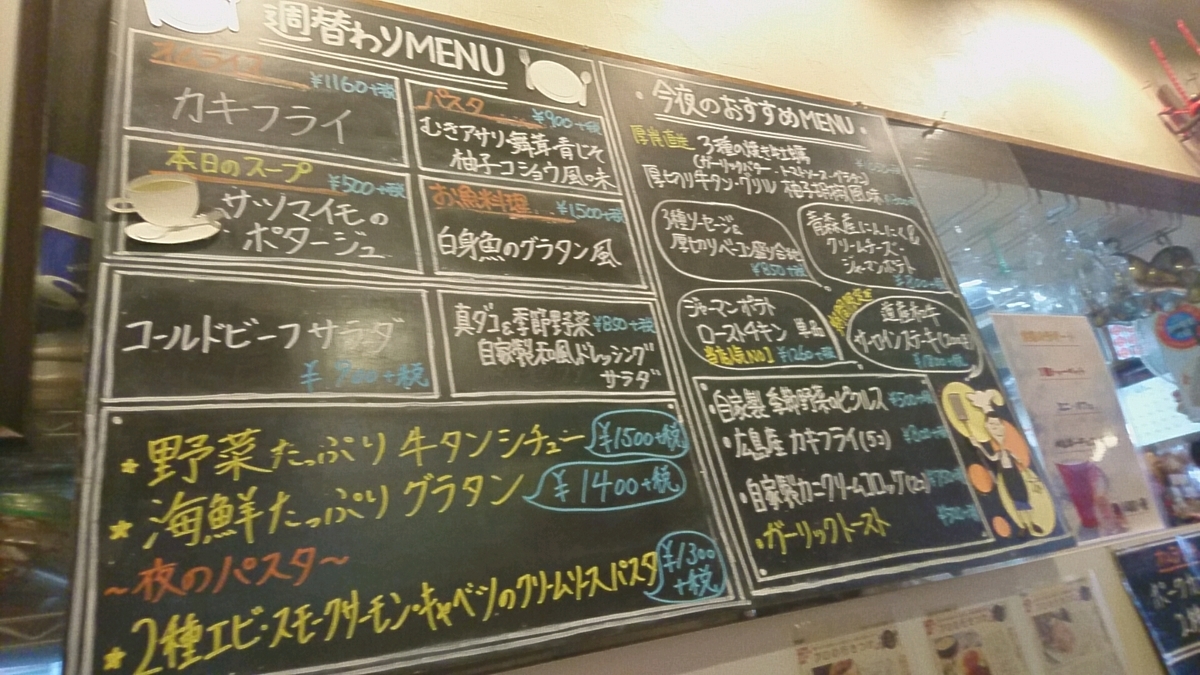 週替わりMENU
オムライス
¥1160+税
カキフライ
パスタ
¥900+税
むきアサリ・舞茸・青じそ
柚子コショウ風の味
本日のスープ
¥500+税
サツマイモの
ポタージュ
お魚料理
¥1,500+税
白身魚のグラタン風
コールドビーフサラダ
¥900+税
真ダコ&季節野菜
¥850+税
自家製和風ドレッシング
サラダ
★野菜たっぷり牛タンシチュー
¥1500+税
★海鮮たっぷりグラタン
¥1400+税
～夜のパスタ～
★2種エビ・スモークサーモン・キャベツのクリームソースパスタ
¥1300
+税
・今夜のおすすめMENU・
厚岸直送
3種の焼き牡蠣
(ガーリックバター・トマトソース・グラタン)
厚切り牛タン・グリル 柚子胡椒風味
3種ソーセージ&
厚切りベーコン盛り合せ
¥850+税
青森産にんにく&
クリームチーズ
ジャーマンポテト
ジャーマンポテト
ローストチキン 単品
当店人気NO1
¥1260+税
道産和牛
サーロインステーキ
¥1800+税
・自家製 季節野菜のピクルス
¥500+税
・広島産 カキフライ(5コ)
・自家製カニクリームコロッケ(2コ)
・ガーリックトースト